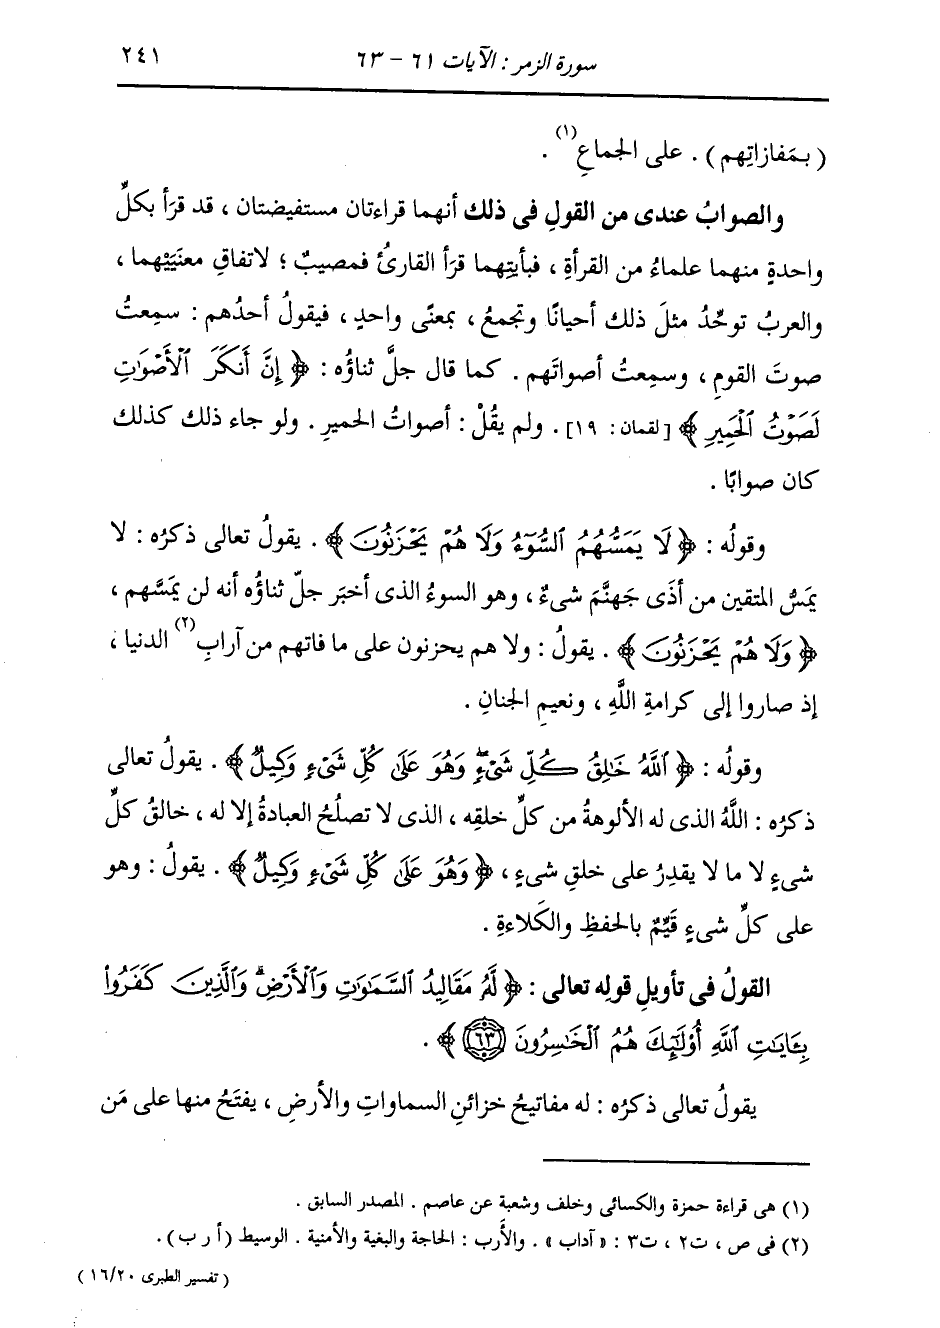 سورة الزمر : الآيات ٦١ - ٦٣
٢٤١
( بمَفازاتِهم ) . على الجماعِ(١) .
والصوابُ عندى من القولِ فى ذلك أنهما قراءتان مستفيضتان ، قد قرَأ بكلِّ
واحدةٍ منهما علماءُ من القرأةِ ، فبأيتِهما قرَأ القارئُ فمصيبٌ ؛ لاتفاقِ معنَيَيْهما ،
والعربُ توحِّدُ مثلَ ذلك أحيانًا وتجمعُ ، بمعنًى واحدٍ ، فيقولُ أحدُهم : سمِعتُ
صوتَ القومِ ، وسمِعتُ أصواتَهم . كما قال جلَّ ثناؤُه : ﴿ إِنَّ أَنكَرَ ٱلْأَصْوَٰتِ
لَصَوْتُ ٱلْحَمِيرِ ﴾ [ لقمان : ١٩] . ولم يقُلْ : أصواتُ الحميرِ . ولو جاء ذلك كذلك
كان صوابًا .
وقولُه : ﴿ لَا يَمَسُّهُمُ ٱلسُّوٓءُ وَلَا هُمْ يَحْزَنُونَ ﴾ . يقولُ تعالى ذكرُه : لا
يمَسُّ المتقين من أذَى جَهنَّمَ شىءٌ ، وهو السوءُ الذى أخبَر جلّ ثناؤُه أنه لن يمَسَّهم ،
﴿ وَلَا هُمْ يَحْزَنُونَ ﴾ . يقولُ : ولا هم يحزنون على ما فاتهم من آرابِ(٢) الدنيا ،
إذ صاروا إلى كرامةِ اللَّهِ ، ونعيمِ الجنانِ .
وقولُه : ﴿ ٱللَّهُ خَٰلِقُ كُلِّ شَىْءٍۖ وَهُوَ عَلَىٰ كُلِّ شَىْءٍ وَكِيلٌ ﴾ . يقولُ تعالى
ذكرُه : اللَّهُ الذى له الألوهةُ من كلِّ خلقِه ، الذى لا تصلُحُ العبادةُ إلا له ، خالقُ كلِّ
شىءٍ لا ما لا يقدِرُ على خلقِ شىءٍ ، ﴿ وَهُوَ عَلَىٰ كُلِّ شَىْءٍ وَكِيلٌ ﴾ . يقولُ : وهو
على كلِّ شىءٍ قَيِّمٌ بالحفظِ والكَلاءةِ .
القولُ فى تأويلِ قولِه تعالى : ﴿ لَّهُۥ مَقَالِيدُ ٱلسَّمَٰوَٰتِ وَٱلْأَرْضِۗ وَٱلَّذِينَ كَفَرُوا۟
بِـَٔايَٰتِ ٱللَّهِ أُو۟لَٰٓئِكَ هُمُ ٱلْخَٰسِرُونَ ٦٣ ﴾ .
يقولُ تعالى ذكرُه : له مفاتيحُ خزائنِ السماواتِ والأرضِ ، يفتَحُ منها على مَن
(١) هى قراءة حمزة والكسائى وخلف وشعبة عن عاصم . المصدر السابق .
(٢) فى ص ، ت٢ ، ت٣ : « آداب » . والأَرب : الحاجة والبغية والأمنية . الوسيط ( أ ر ب ) .
( تفسير الطبرى ١٦/٢٠ )